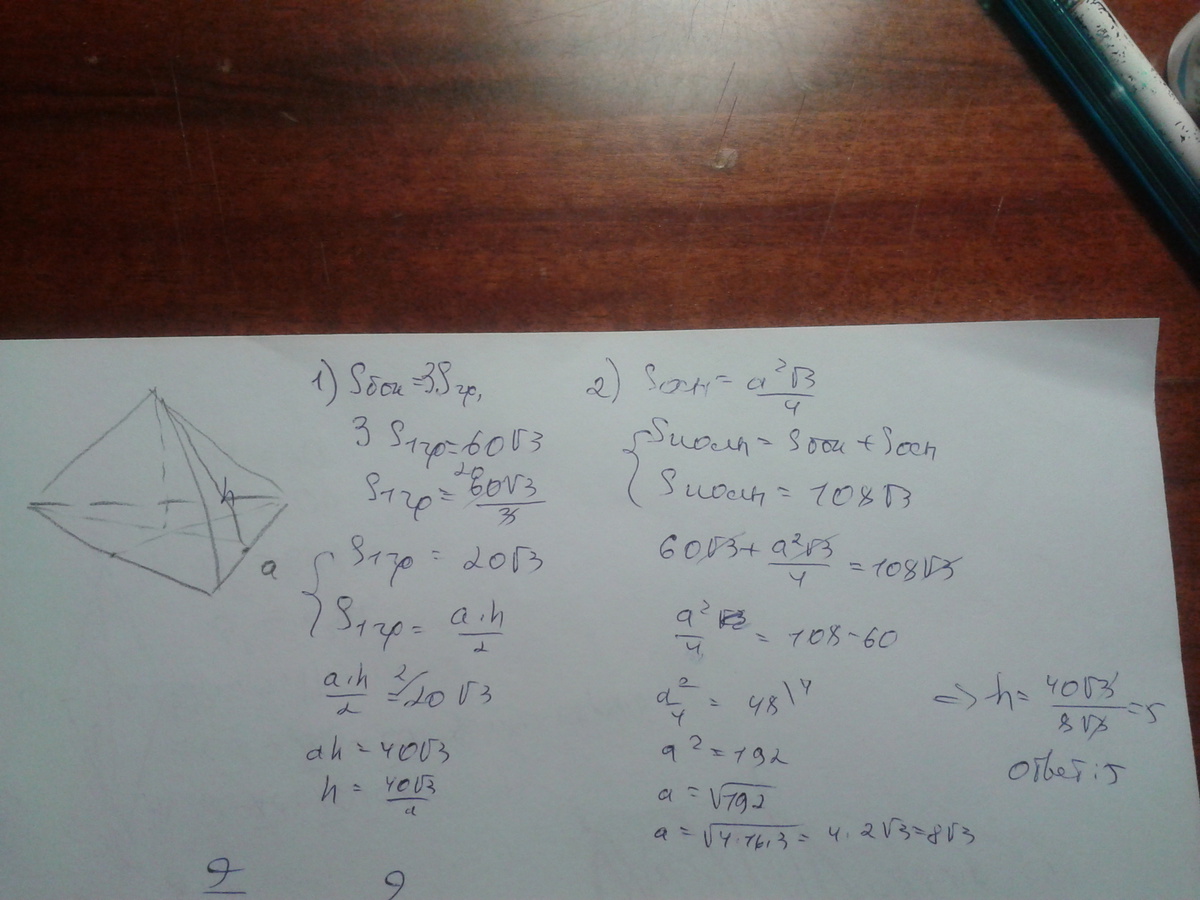 1) Sбок=3Sгр,
3 S1гр=60√3
S1гр = 60√3/3
20
S1гр = 20√3
S1гр = a·h/2
a·h/2 = 20√3
2
ah = 40√3
h = 40√3/a
h
a
2) Sосн = a²√3/4
Sполн = Sбок + Sосн
Sполн = 108√3
60√3 + a²√3/4 = 108√3
a²/4 = 108-60
a²/4 = 48 \4
a² = 192
a = √192
a = √4·16·3 = 4·2√3=8√3
=> h = 40√3/8√3 = 5
Ответ: 5